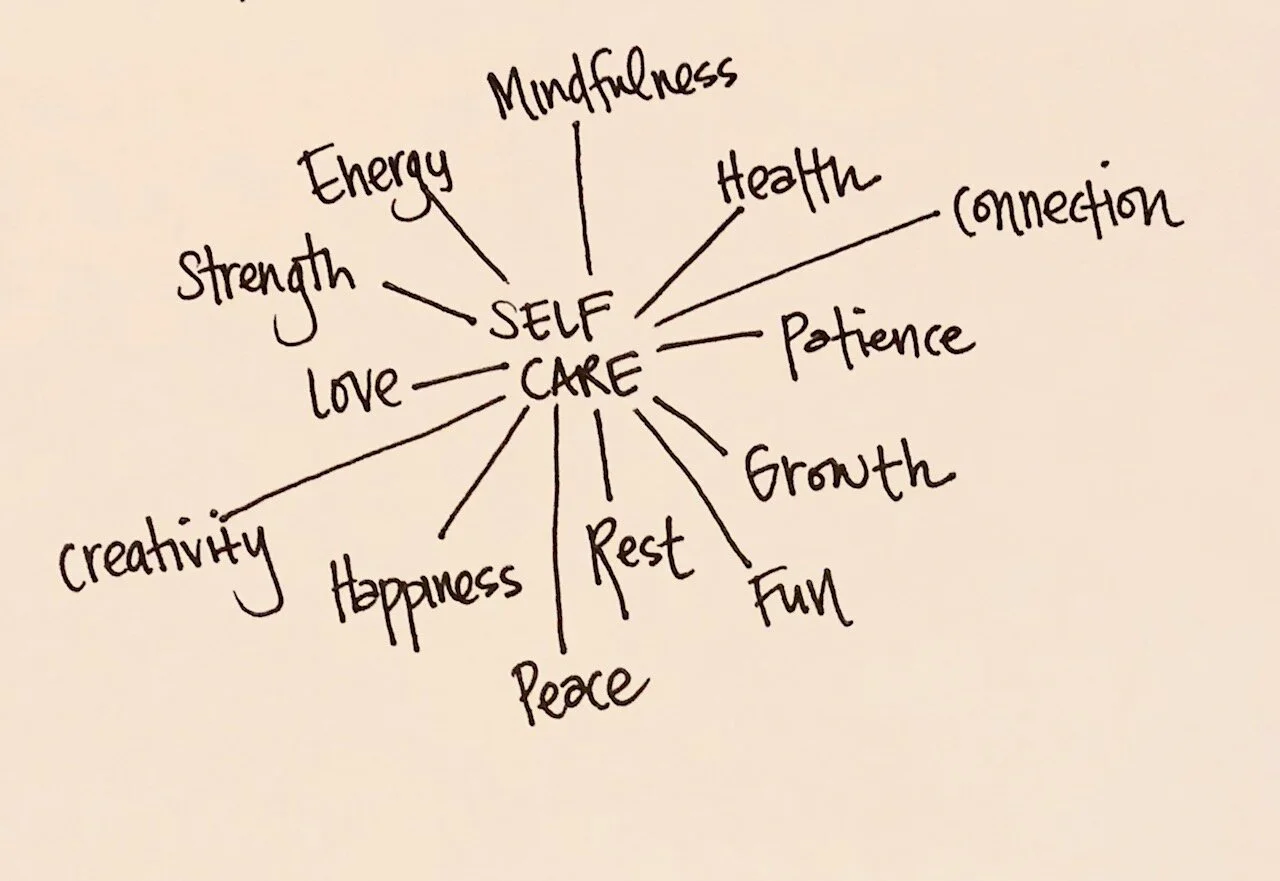 Mindfulness
Energy
Health
Connection
Strength
SELF
CARE
Patience
Love
Growth
Creativity
Happiness
Rest
Fun
Peace